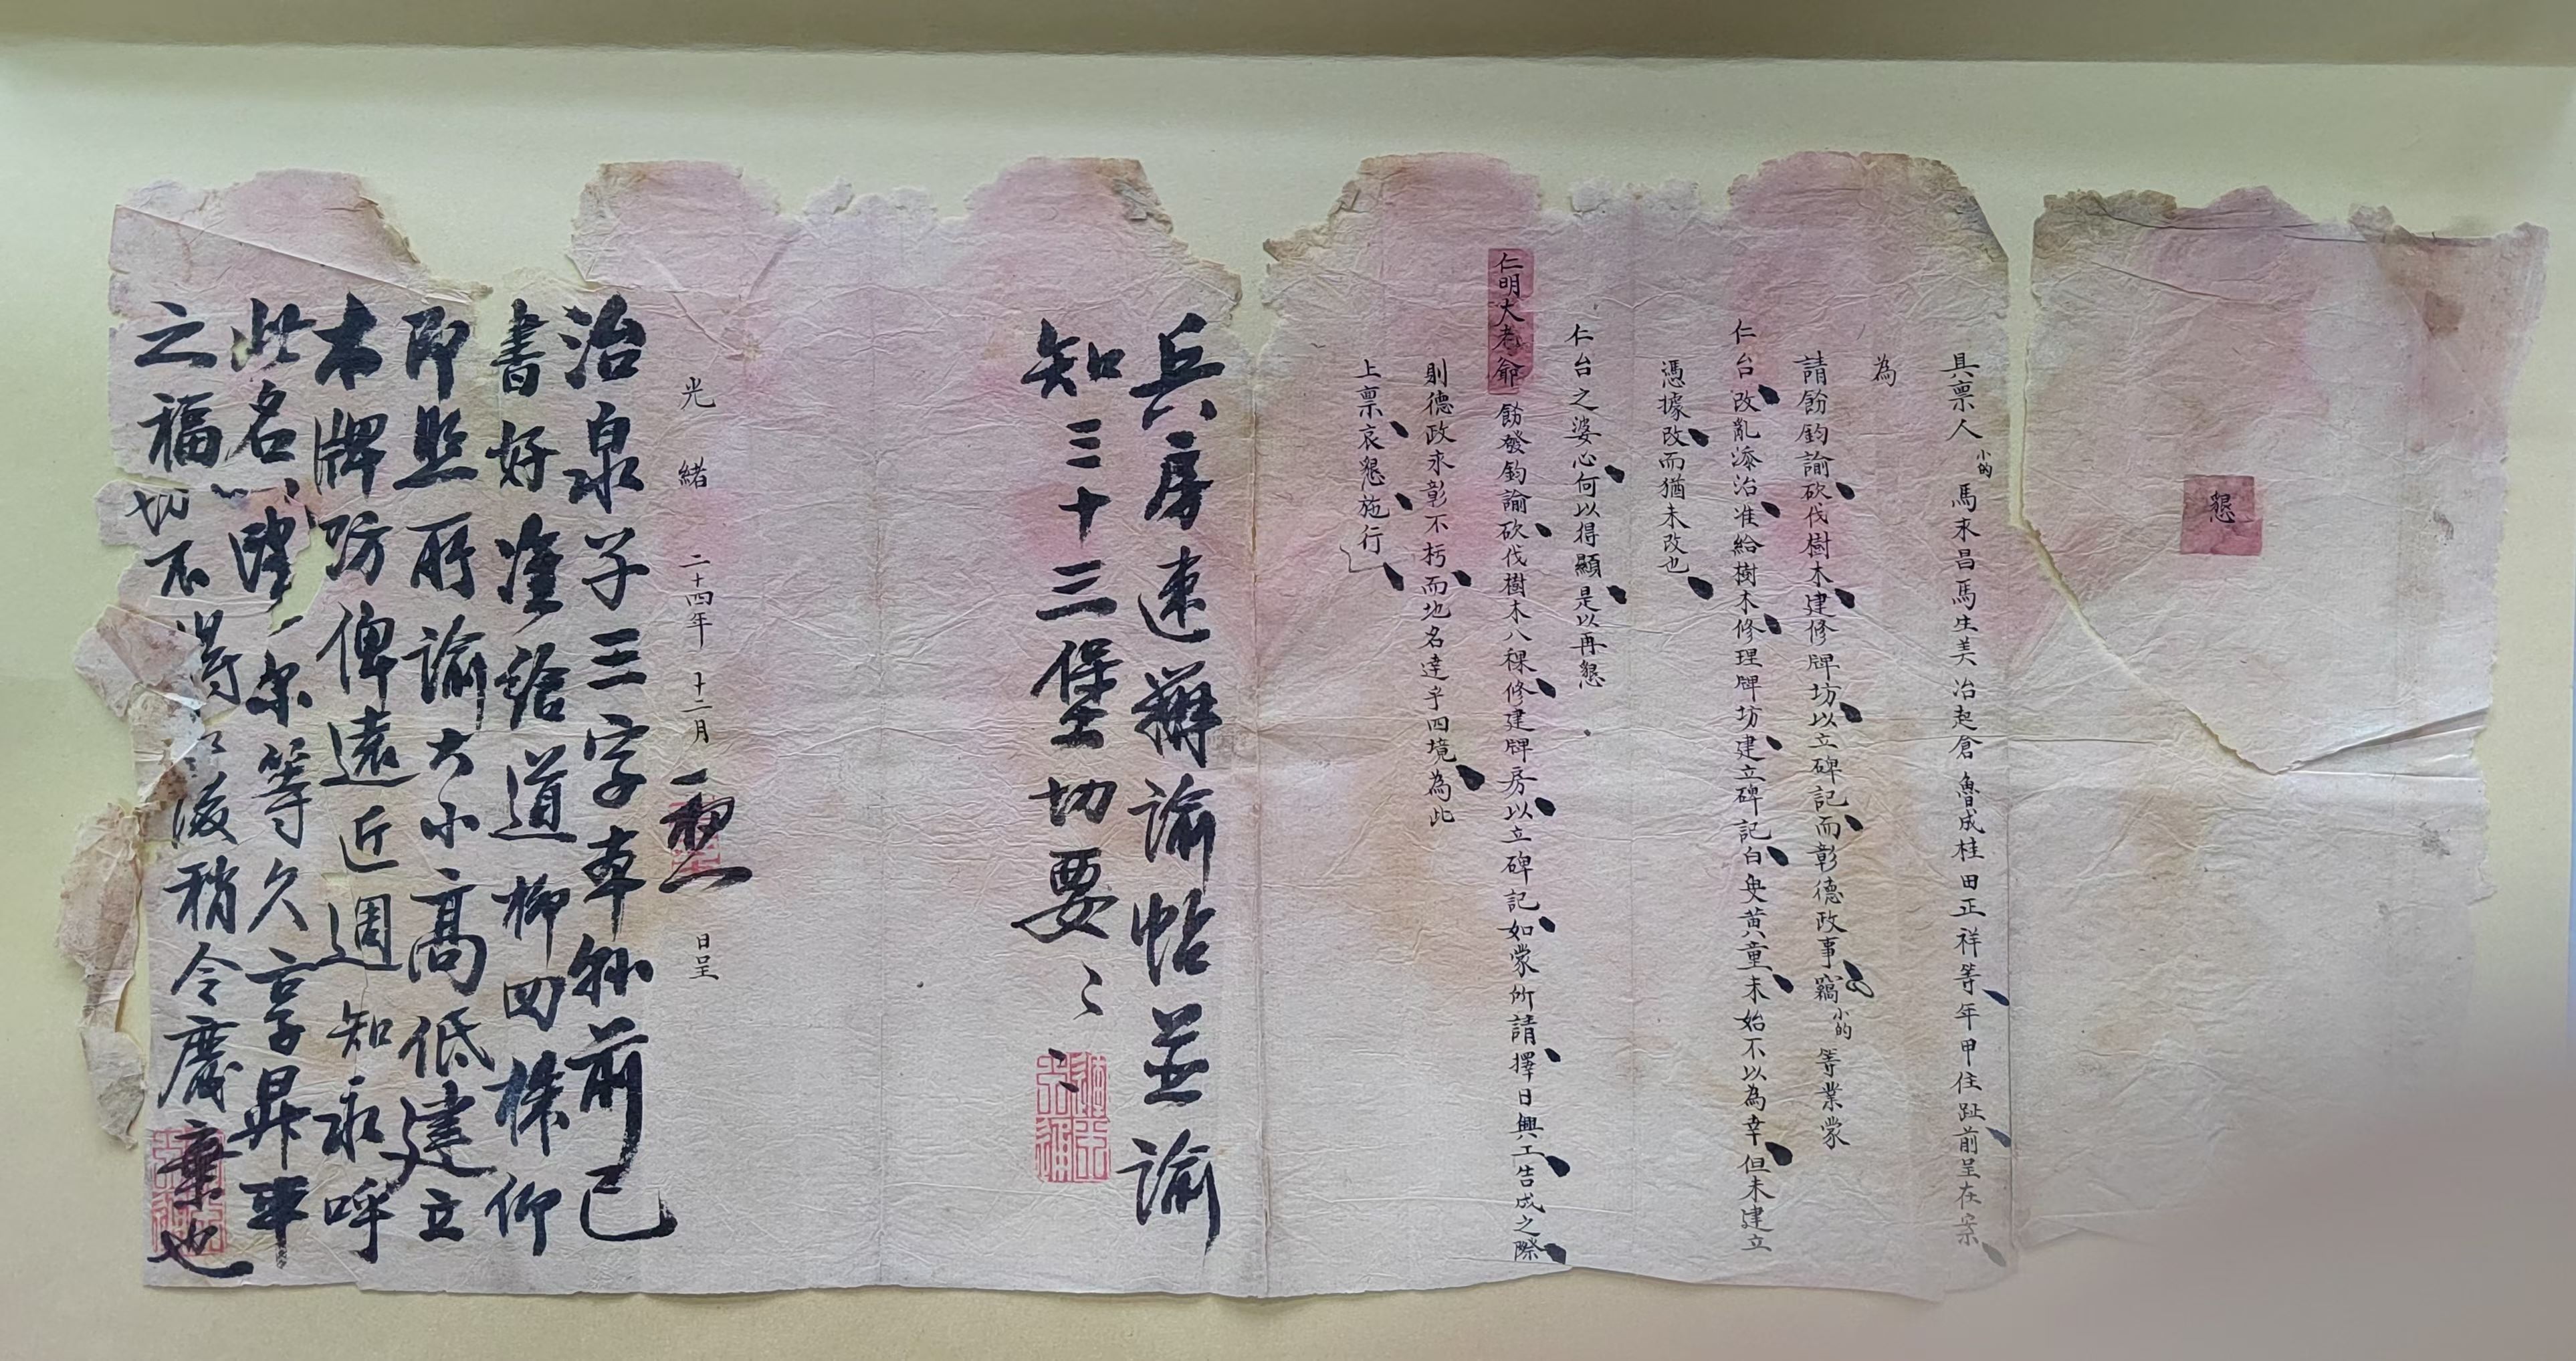 懇
具禀人小的馬來昌馬生美冶起倉魯成桂田正祥等年甲住趾前呈在案
為
請飭鈞諭砍伐樹木建修牌坊以立碑記而彰德政事竊小的等業蒙
仁台改亂添治准給樹木修理牌坊建立碑記白叟黄童未始不以為幸但未建立
憑據改而猶未改也
仁台之婆心何以得顯是以再懇
仁明大老爺飭發鈞諭砍伐樹木八稞修建牌房以立碑記如蒙所請擇日興工告成之際
則德政永彰不朽而地名達乎四境為此
上禀哀懇施行
兵房速辦諭帖並諭
知三十三堡切要
光緒二十四年十二月初 日呈
治泉子三字車 前已
書好 給道柳四株仰
即照所諭大小高低建立
木牌坊俾遠近週知永呼
此名 尔等久享昇平
之福切不得 後稍令廢棄也